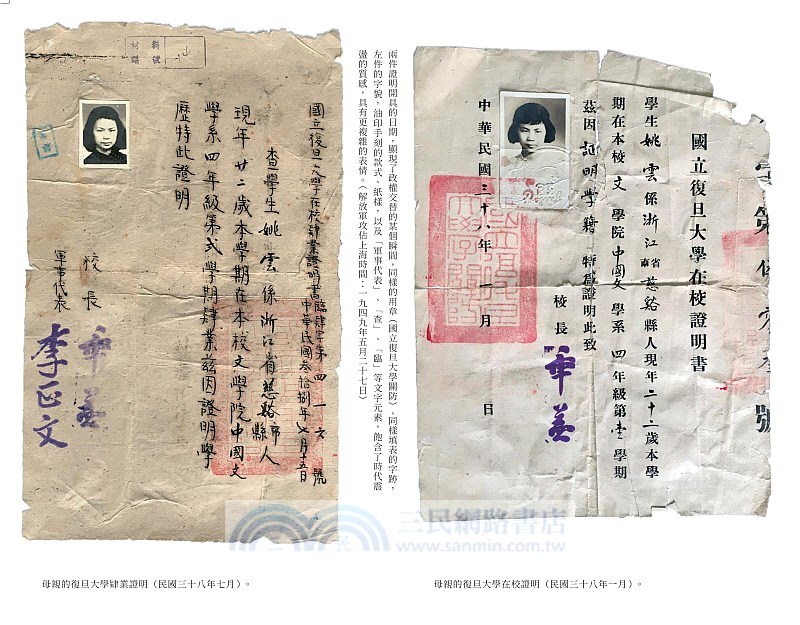 國立復旦大學在校證明書
學生姚雲係浙江省慈谿縣人現年二十二歲本學
期在本校文學院中國文學系四年級第壹學期
茲因證明學籍特發證明此致
校長
章益
中華民國三十八年一月 日
號
母親的復旦大學在校證明（民國三十八年一月）。
兩件證明開具的日期，顯現了政權交替的某個瞬間，同樣的用章（國立復旦大學關防）、同樣填表的字跡，
左件的字貌，油印手刻的款式、紙樣，以及「軍事代表」、「查」、「臨」等文字元素，飽含了時代震
盪的質感，具有更複雜的表情。（解放軍攻佔上海時間：一九四九年五月二十七日）
國立復旦大學在校肄業證明書臨肄字第四一六號
中華民國叁拾捌年七月十五日
查學生姚雲係浙江省慈谿縣市人
現年廿二歲本學期在本校文學院中國文
學系四年級第弍學期肄業茲因證明學
歷特此證明
校長
章益
軍事代表
李正文
母親的復旦大學肄業證明（民國三十八年七月）。
三民網路書店
www.sanmin.com.tw